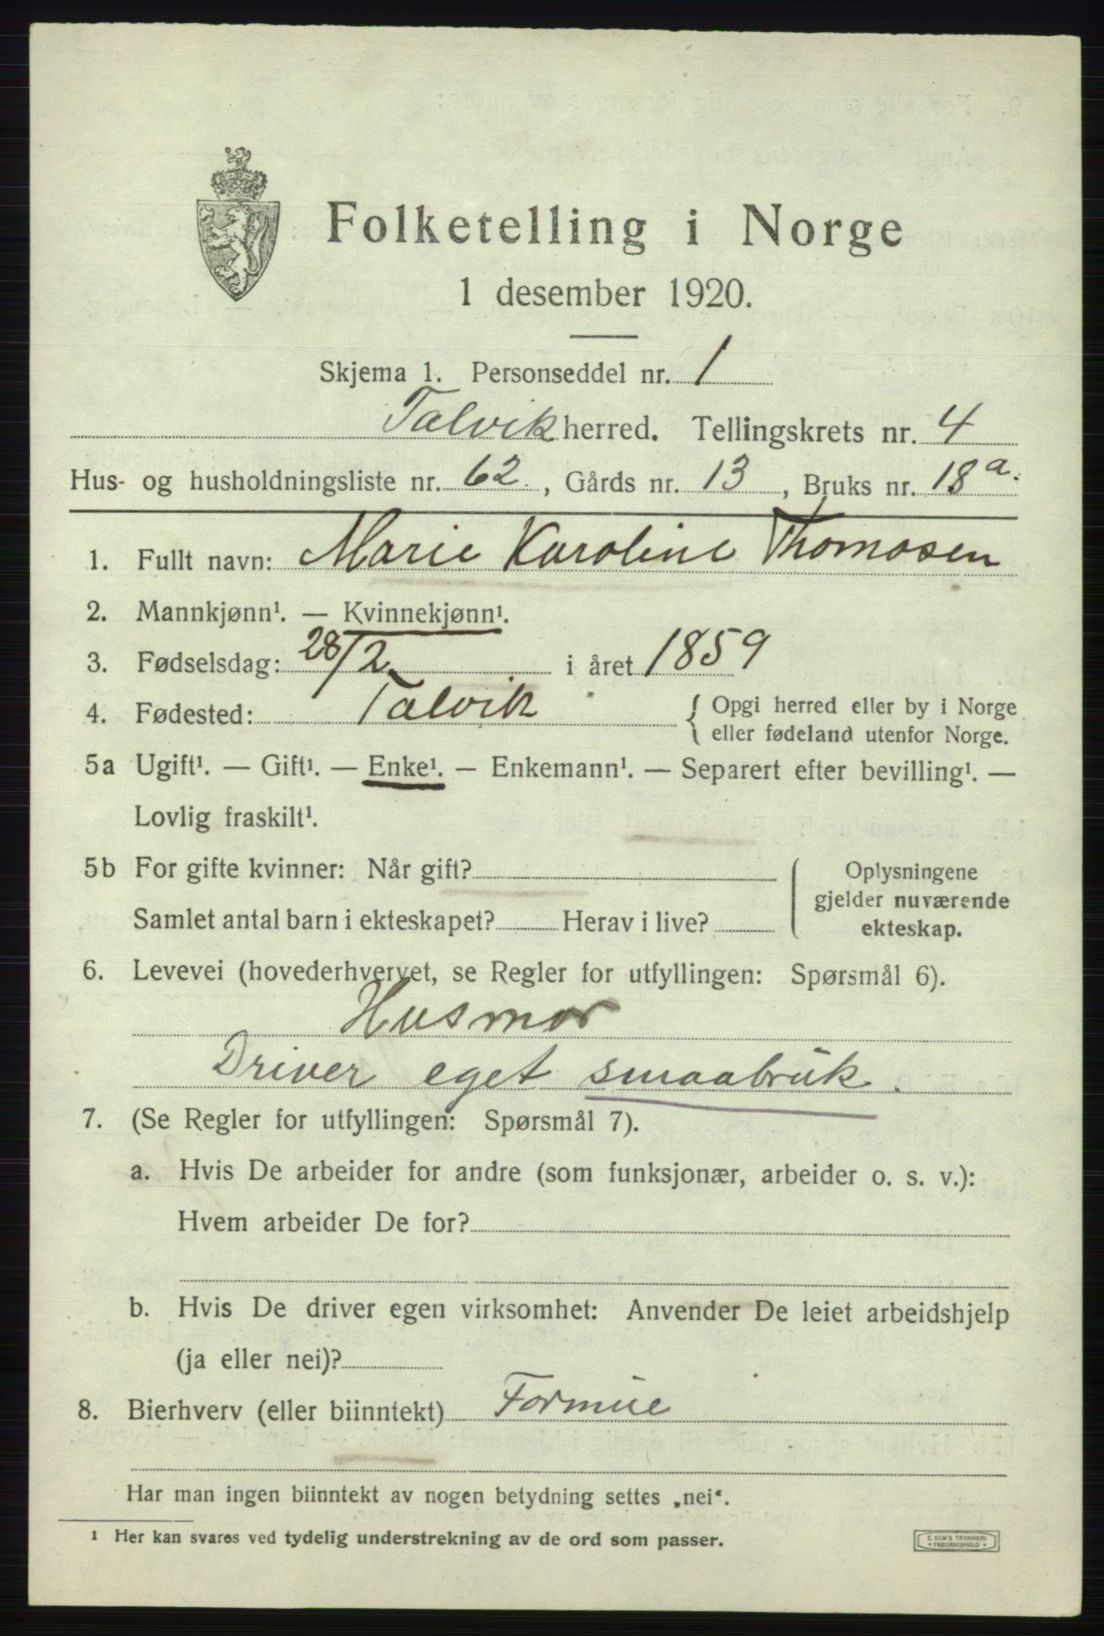 Folketelling i Norge
1 desember 1920.
Skjema 1. Personseddel nr. 1
Talvik herred. Tellingskrets nr. 4
Hus- og husholdningsliste nr. 62, Gårds nr. 13, Bruks nr. 18a.
1. Fullt navn: Marie Karoline Thomasen
2. Mannkjønn¹. — Kvinnekjønn¹.
3. Fødselsdag: 28/2 i året 1859
4. Fødested: Talvik { Opgi herred eller by i Norge
eller fødeland utenfor Norge.
5a Ugift¹. — Gift¹. — Enke¹. — Enkemann¹. — Separert efter bevilling¹. —
Lovlig fraskilt¹.
5b For gifte kvinner: Når gift?
Samlet antal barn i ekteskapet? Herav i live?
Oplysningene
gjelder nuværende
ekteskap.
6. Levevei (hovederhvervet, se Regler for utfyllingen: Spørsmål 6).
Husmor
Driver eget smaabruk.
7. (Se Regler for utfyllingen: Spørsmål 7).
a. Hvis De arbeider for andre (som funksjonær, arbeider o. s. v.):
Hvem arbeider De for?
b. Hvis De driver egen virksomhet: Anvender De leiet arbeidshjelp
(ja eller nei)?
8. Bierhverv (eller biinntekt) Formue
Har man ingen biinntekt av nogen betydning settes „nei“.
¹ Her kan svares ved tydelig understrekning av de ord som passer.
E. SEM'S TRYKKERI
FREDRIKSHALD